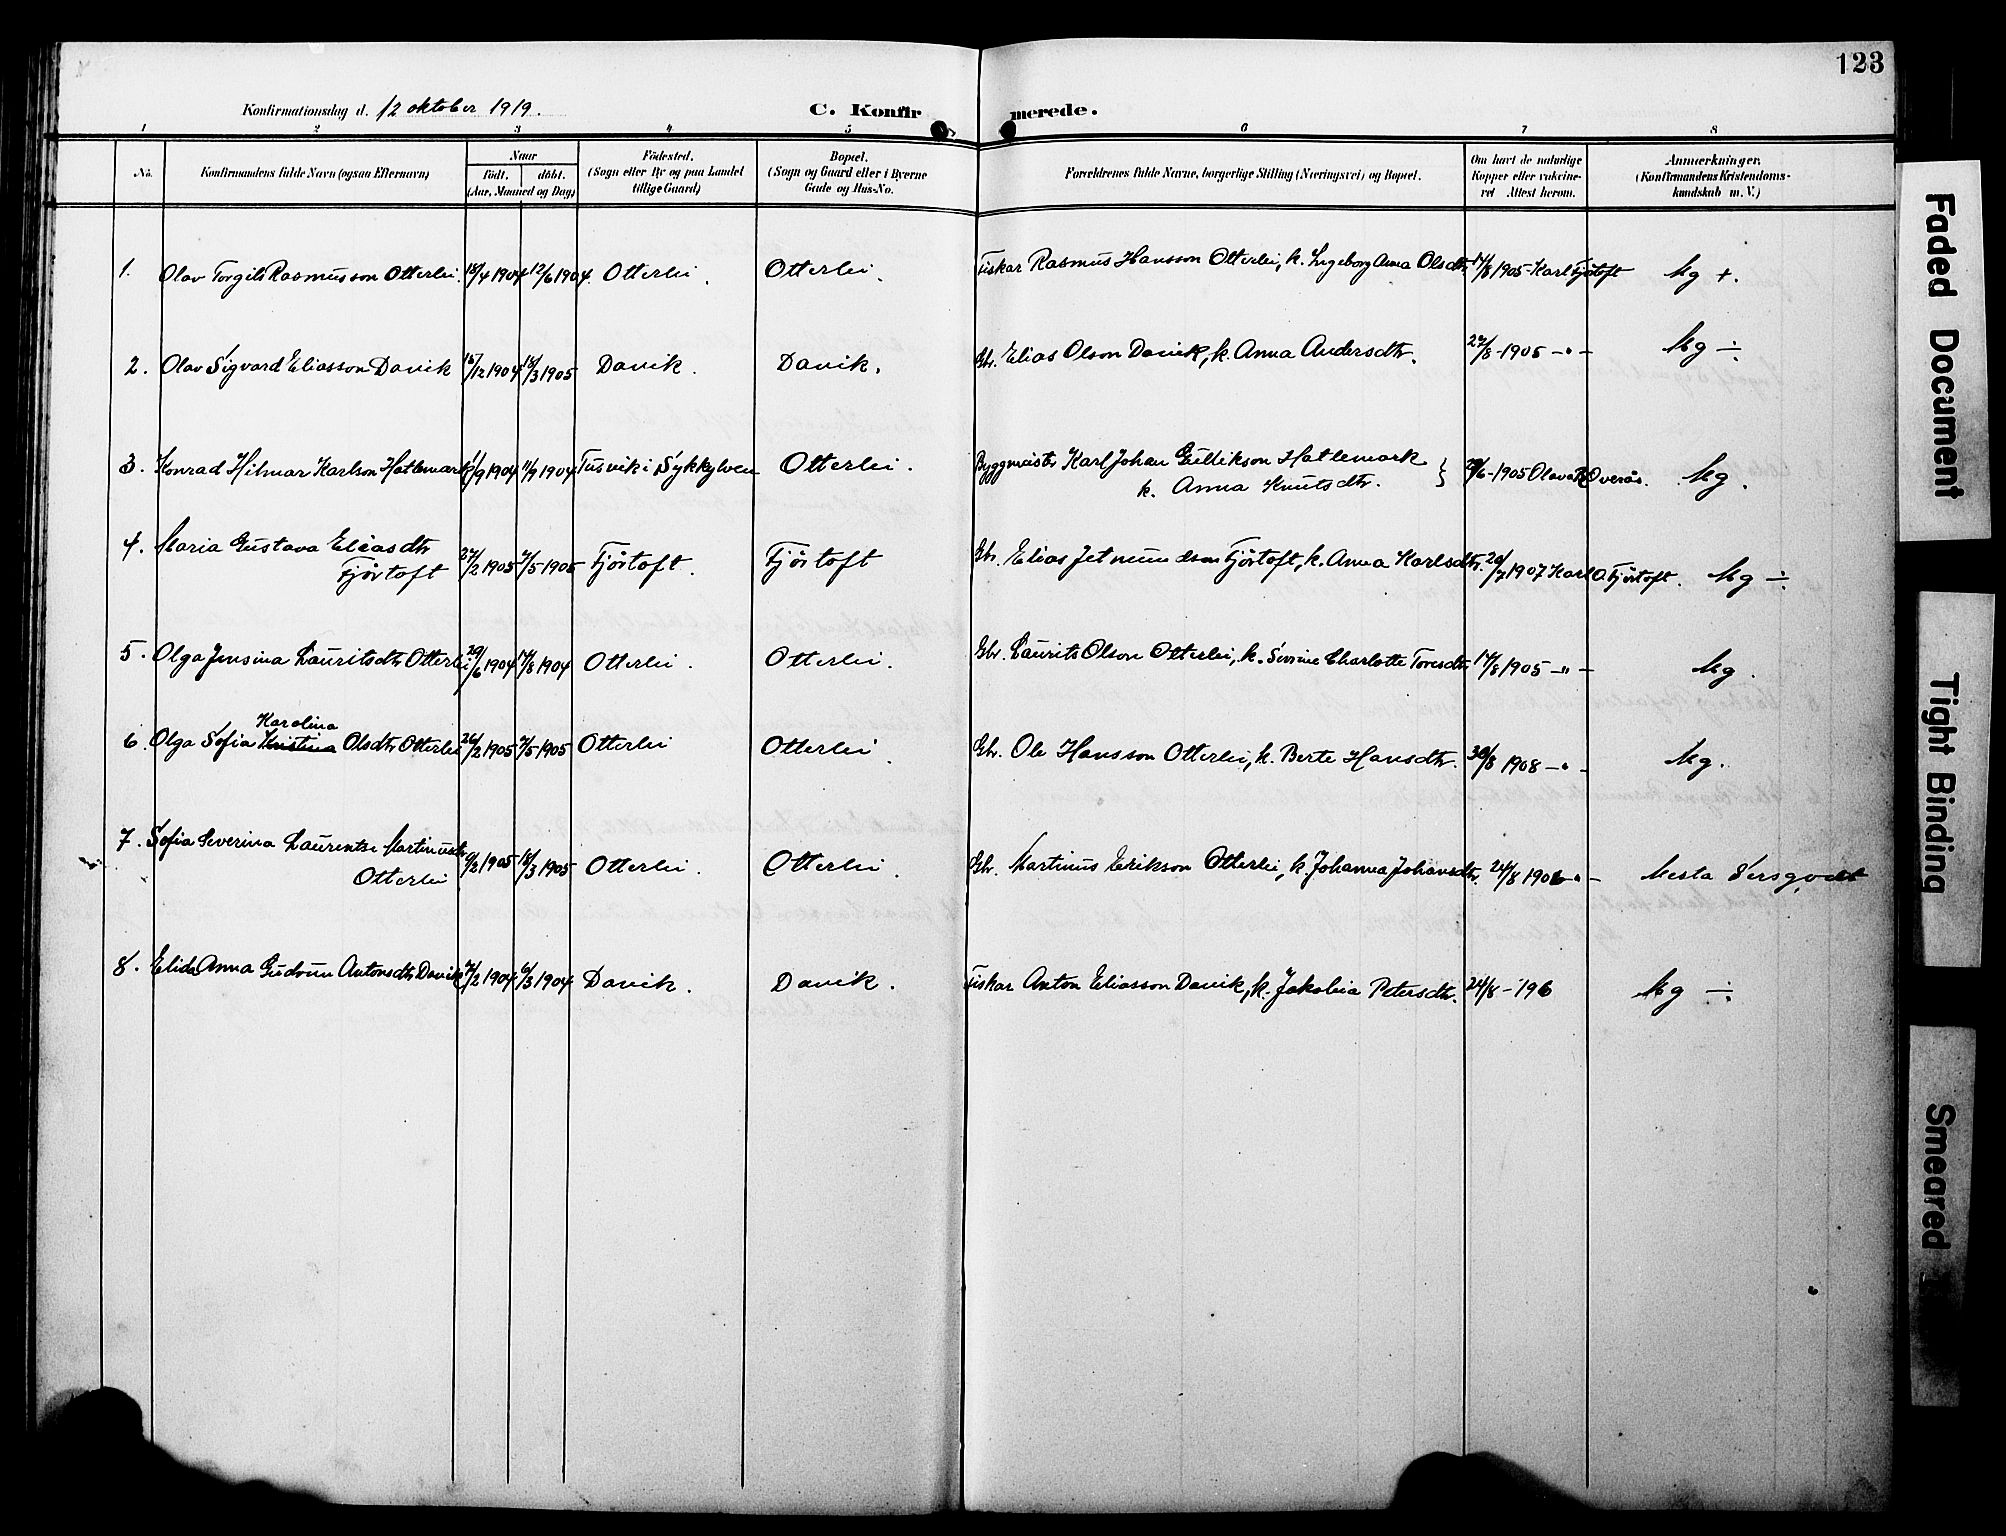 123
Konfirmationsdag d. 12 oktober 1919. C. Konfirmerede.
1 2 3 4 5 6 7 8
No. Konfirmandens fulde Navn (ogsaa Efternavn) Naar Födt. döbt. (Aar, Maaned og Dag) Födested. (Sogn eller By og paa Landet tillige Gaard) Bopæl. (Sogn og Gaard eller i Byerne Gade og Hus-No. Forældrenes fulde Navne, borgerlige Stilling (Næringsvei) og Bopæl. Om havt de naturlige Kopper eller vaccineret Attest herom. Anmærkninger. (Konfirmandens Kristendomskundskab m. V.)
1. Olav Torgils Rasmusson Otterlei. 18/4 1904 12/6 1904. Otterlei. Otterlei. Fiskar Rasmus Hansson Otterlei, k. Ingeborg Anna Olsdtr. 17/8 1905 - Karl Fjörtoft Mg +.
2. Olav Sigvard Eliasson Davik 15/12 1904 18/3 1905 Davik. Davik. Gbr. Elias Olson Davik, k. Anna Andersdtr. 22/8 - 1905 -"- Mg ÷
3. Konrad Hilmar Karlson Hatlemark 1/9 1904 11/9 1904 Tusvik i Sykkylven Otterlei. Byggmeister Karl Johan Gullikson Hatlemark }
k. Anna Knutsdtr. 29/6 - 1905 Olav R Overås. Mg.
4. Maria Gustava Eliasdtr
Fjörtoft 27/2 1905 7/5 1905 Fjörtoft. Fjörtoft Gbr. Elias Jetmundson Fjörtoft, k. Anna Karlsdtr. 20/7 1907 Karl O Fjörtoft. Mg ÷
5. Olga Jensina Lauritsdtr Otterlei 29/6 1904 14/8 1904 Otterlei. Otterlei. Gbr. Laurits Olson Otterlei, k. Severine Charlotte Toresdtr 17/8 1905 -"- Mg.
Karolina
6. Olga Sofia Kristina Olsdtr Otterlei 26/2 1905 7/5 1905 Otterlei Otterlei. Gbr. Ole Hansson Otterlei, k. Berte Hansdtr. 30/8 1908 -"- Mg.
7. Sofia Severina Laurentse Martinusdtr
Otterlei 9/2 1905 18/3 1905 Otterlei. Otterlei. Gbr. Martinus Erikson Otterlei, k. Johanna Johansdtr. 24/8 1906 -"- Mesta
8. Elida Anna Gudrun Antonsdtr Davik 7/2 1904 6/3 1904 Davik. Davik. Fiskar Anton Eliasson Davik, k. Jakobia Petersdtr. 24/8 - 196 Mg ÷
Faded Document
Tight Binding
Smeared